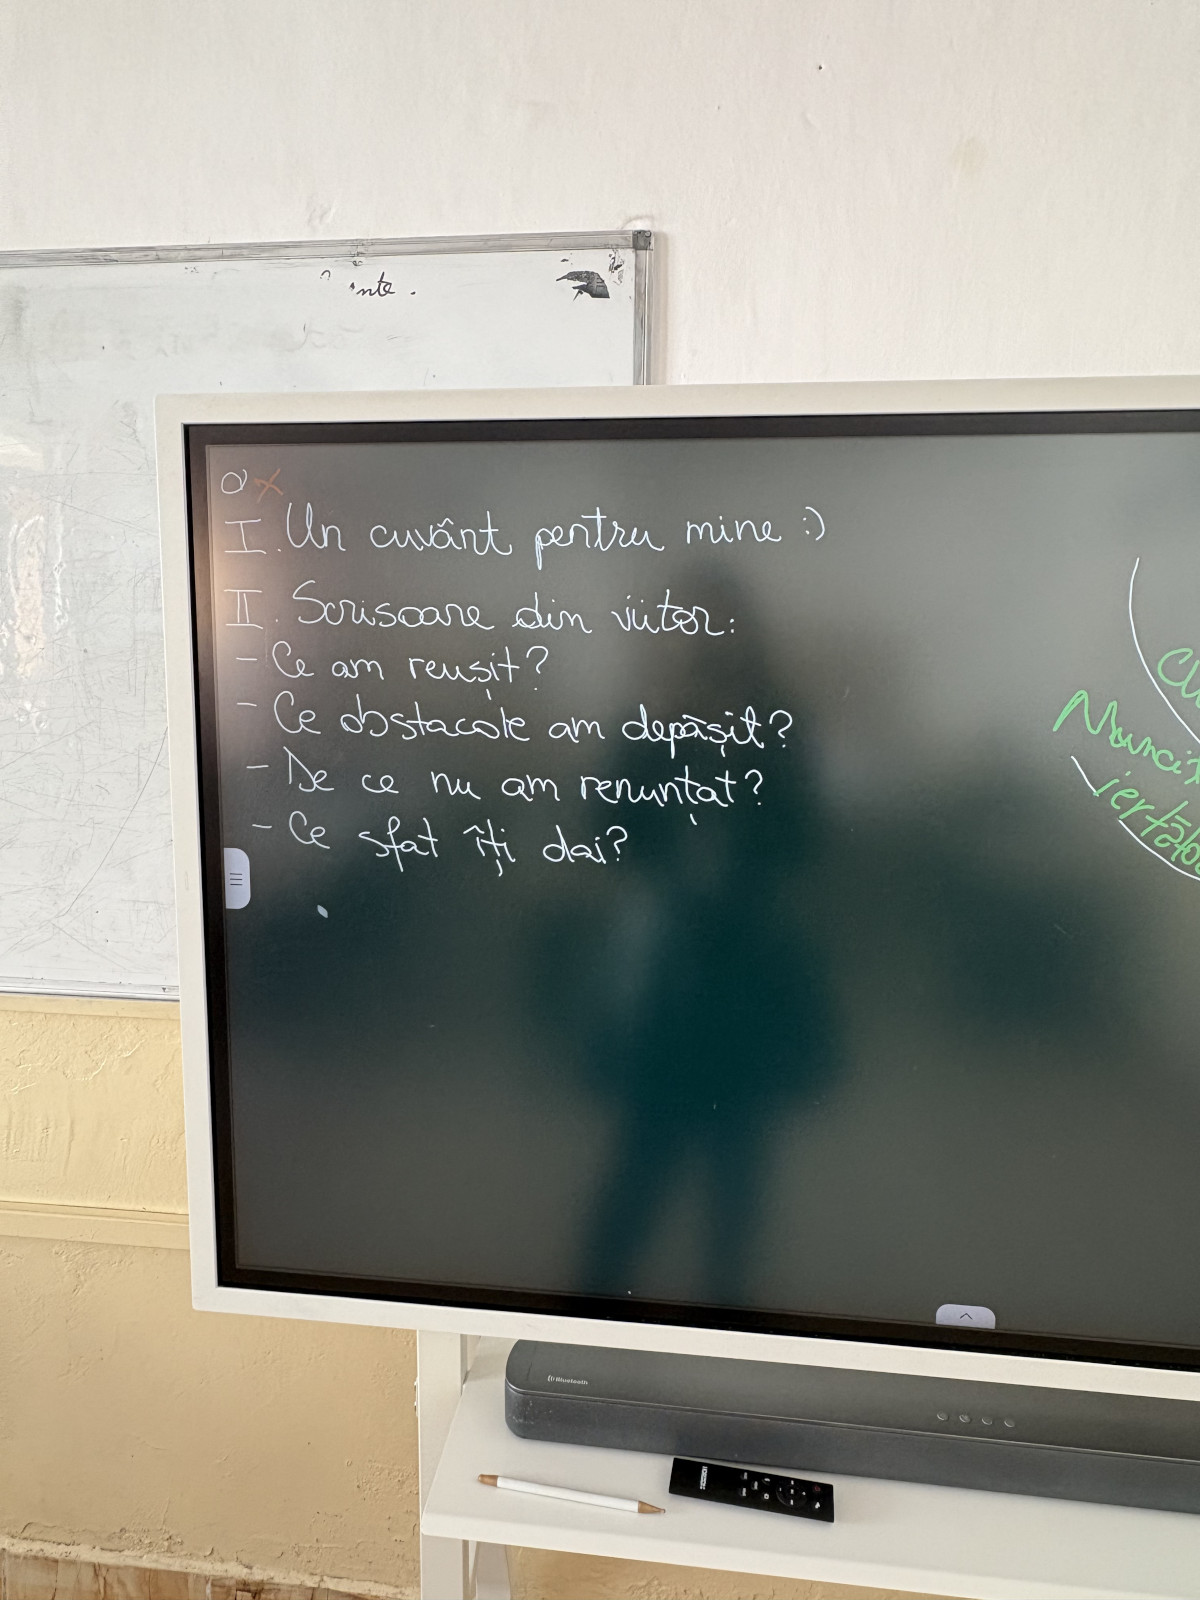 I. Un cuvânt pentru mine :)
II. Scrisoare din viitor:
- Ce am reușit?
- Ce obstacole am depășit?
- De ce nu am renunțat?
- Ce sfat îți dai?
Bluetooth